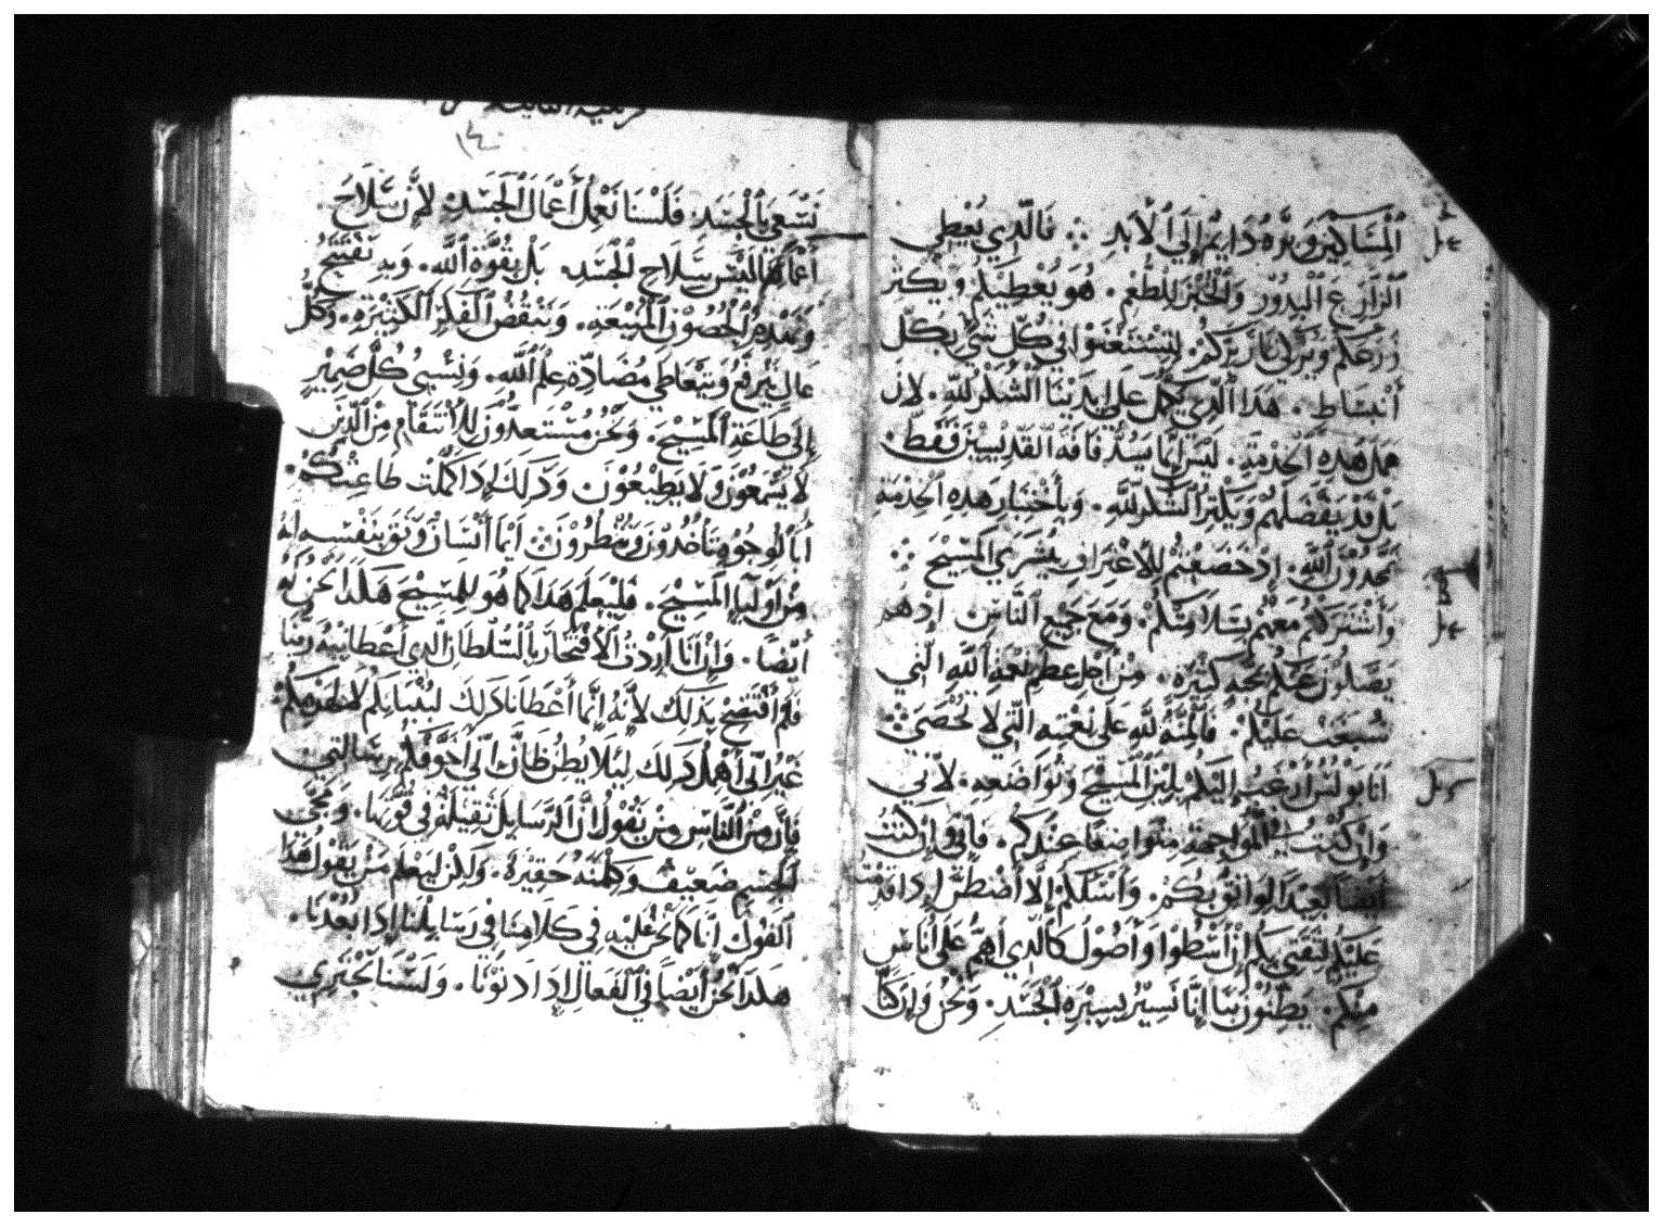 ٱلْمَسَاكِيْنَ وَبِرُّهُ دَايِمٌ إِلَى ٱلْأَبَدِ ۞ فَالَّذِي يُعْطِي
ٱلزَّارِعَ ٱلْبِدُوْرَ وَٱلْخُبْزَ لِلطُّعْمِ . هُوَ يُعْطِيْكُمْ وَيُكْثِرُ
زَرْعَكُمْ وَيُزَكِّي ثَمَارَ بِرِّكُمْ . لِتَسْتَغْنَوْا فِي كُلِّ شَيْءٍ بِكُلِّ
أَنْبِسَاطٍ . هَذَا ٱلَّذِي يُكْمَلُ عَلَى أَيْدِيْنَا ٱلشُّكْرَ لِلَّهِ . لِأَنَّ
عَمَلَ هَذِهِ ٱلْخِدْمَةِ . لَيْسَ إِنَّمَا يَسُدُّ فَاقَةَ ٱلْقِدِّيْسِيْنَ فَقَطْ .
بَلْ قَدْ يَفْضُلُهُمْ وَيُكْثِرُ ٱلشُّكْرَ لِلَّهِ . وَبِأَخْتِبَارِ هَذِهِ ٱلْخِدْمَةِ
تَحْمَدُوْنَ ٱللَّهَ . إِذْ خَضَعْتُمْ لِلْاعْتِرَافِ بِبُشْرَى ٱلْمَسِيْحِ ۞
وَأَشْتَرَكْتُمْ مَعَهُمْ بِسَلَامَتِكُمْ . وَمَعَ جَمِيْعِ ٱلنَّاسِ إِذْ هُمْ
يُصَلُّوْنَ عَنْكُمْ بِمَحَبَّةٍ كَثِيْرَةٍ . مِنْ أَجْلِ عِظَمِ نِعْمَةِ ٱللَّهِ ٱلَّتِي
سُبِغَتْ عَلَيْكُمْ . فَٱلْمِنَّةُ لِلَّهِ عَلَى نِعْمَتِهِ ٱلَّتِي لَا تُحْصَى ۞
أَنَا بَوْلُسُ أَرْغَبُ إِلَيْكُمْ بِلِيْنِ ٱلْمَسِيْحِ وَتُوَاضُعِهِ . لِأَنِّي
وَإِنْ كُنْتُ فِي ٱلْمُوَاجَهَةِ مُتَوَاضِعًا عِنْدَكُمْ . فَإِنِّي وَإِنْ كُنْتُ
أَيْضًا بَعِيْدًا لَوَاثِقٌ بِكُمْ . وَأَسْئَلُكُمْ إِلَّا أَضْطَرَّ إِذَا قَدِمْتُ
عَلَيْكُمْ لِثِقَتِي بِكُمْ إِنْ أَسْطُوَا وَأَصُوْلَ كَٱلَّذِي أَهُمُّ عَلَى أُنَاسٍ
مِنْكُمْ . يَظُنُّوْنَ بِنَا إِنَّا نَسِيْرُ بِسِيْرَةِ ٱلْجَسَدِ . وَنَحْنُ وَإِنْ كُنَّا
نَسْعَى بِٱلْجَسَدِ . فَلَسْنَا نَعْمَلُ أَعْمَالَ ٱلْجَسَدِ . لِأَنَّ سِلَاحَ
أَعْمَالِنَا لَيْسَ سِلَاحَ ٱلْجَسَدِ . بَلْ بِقُوَّةِ ٱللَّهِ . وَبِهِ نَفْتَتِحُ
وَنَهْدِمُ ٱلْحُصُوْنَ ٱلْمَنِيْعَةِ . وَنَنْقُضُ ٱلْفِكَرَ ٱلْكَثِيْرَةِ . وَكُلَّ
عَالٍ يَرْتَفِعُ وَيَتَعَاطَى مُضَادَّةَ عِلْمِ ٱللَّهِ . وَنَسْبِي كُلَّ ضَمِيْرٍ
إِلَى طَاعَةِ ٱلْمَسِيْحِ . وَنَحْنُ مُسْتَعِدُّوْنَ لِلْأَنْتِقَامِ مِنَ ٱلَّذِيْنَ
لَا يَسْمَعُوْنَ وَلَا يُطِيْعُوْنَ وَذَلِكَ إِذَا كَمُلَتْ طَاعَتُكُمْ
أَبِٱلْوُجُوْهِ تَأْخُذُوْنَ وَتَنْظُرُوْنَ ۞ أَيُّمَا أَنْسَانٍ وَثِقَ بِنَفْسِهِ أَنَّهُ
مِنْ أَوْلِيَاءِ ٱلْمَسِيْحِ . فَلْيَعْلَمْ هَذَا كَمَا هُوَ لِلْمَسِيْحِ هَكَذَا نَحْنُ لَهُ
أَيْضًا . وَإِنْ أَنَا أَرَدْتُ ٱلْأَفْتِخَارَ بِٱلسُّلْطَانِ ٱلَّذِي أَعْطَانِيْهِ رَبُّنَا
فَلَمْ أَفْتَضِحْ بِذَلِكَ لِأَنَّهُ إِنَّمَا أَعْطَانَا ذَلِكَ لِبُنْيَانِكُمْ لَا لِهَدْمِكُمْ .
غَيْرَ أَنِّي أُهْمِلُ ذَلِكَ لِئَلَّا يَظُنَّ ظَانٌّ أَنِّي أُخَوِّفُكُمْ بِرِسَالَتِي
فَإِنَّ مِنَ ٱلنَّاسِ مَنْ يَقُوْلُ إِنَّ ٱلرَّسَايِلَ ثَقِيْلَةٌ فِي قُوَّتِهَا . وَمَجِيءُ
ٱلْجِسْمِ ضَعِيْفٌ وَكَلِمَتُهُ حَقِيْرَةٌ . وَلَكِنْ لِيَعْلَمْ مَنْ يَقُوْلُ هَذَا
ٱلْقَوْلَ أَنَّا كَمَا نَحْنُ عَلَيْهِ فِي كَلَامِنَا فِي رَسَايِلِنَا إِذَا بَعُدْنَا .
هَكَذَا نَحْنُ أَيْضًا فِي ٱلْفَعَالِ إِذَا دَنَوْنَا . وَلَسْنَا نَجْتَرِي